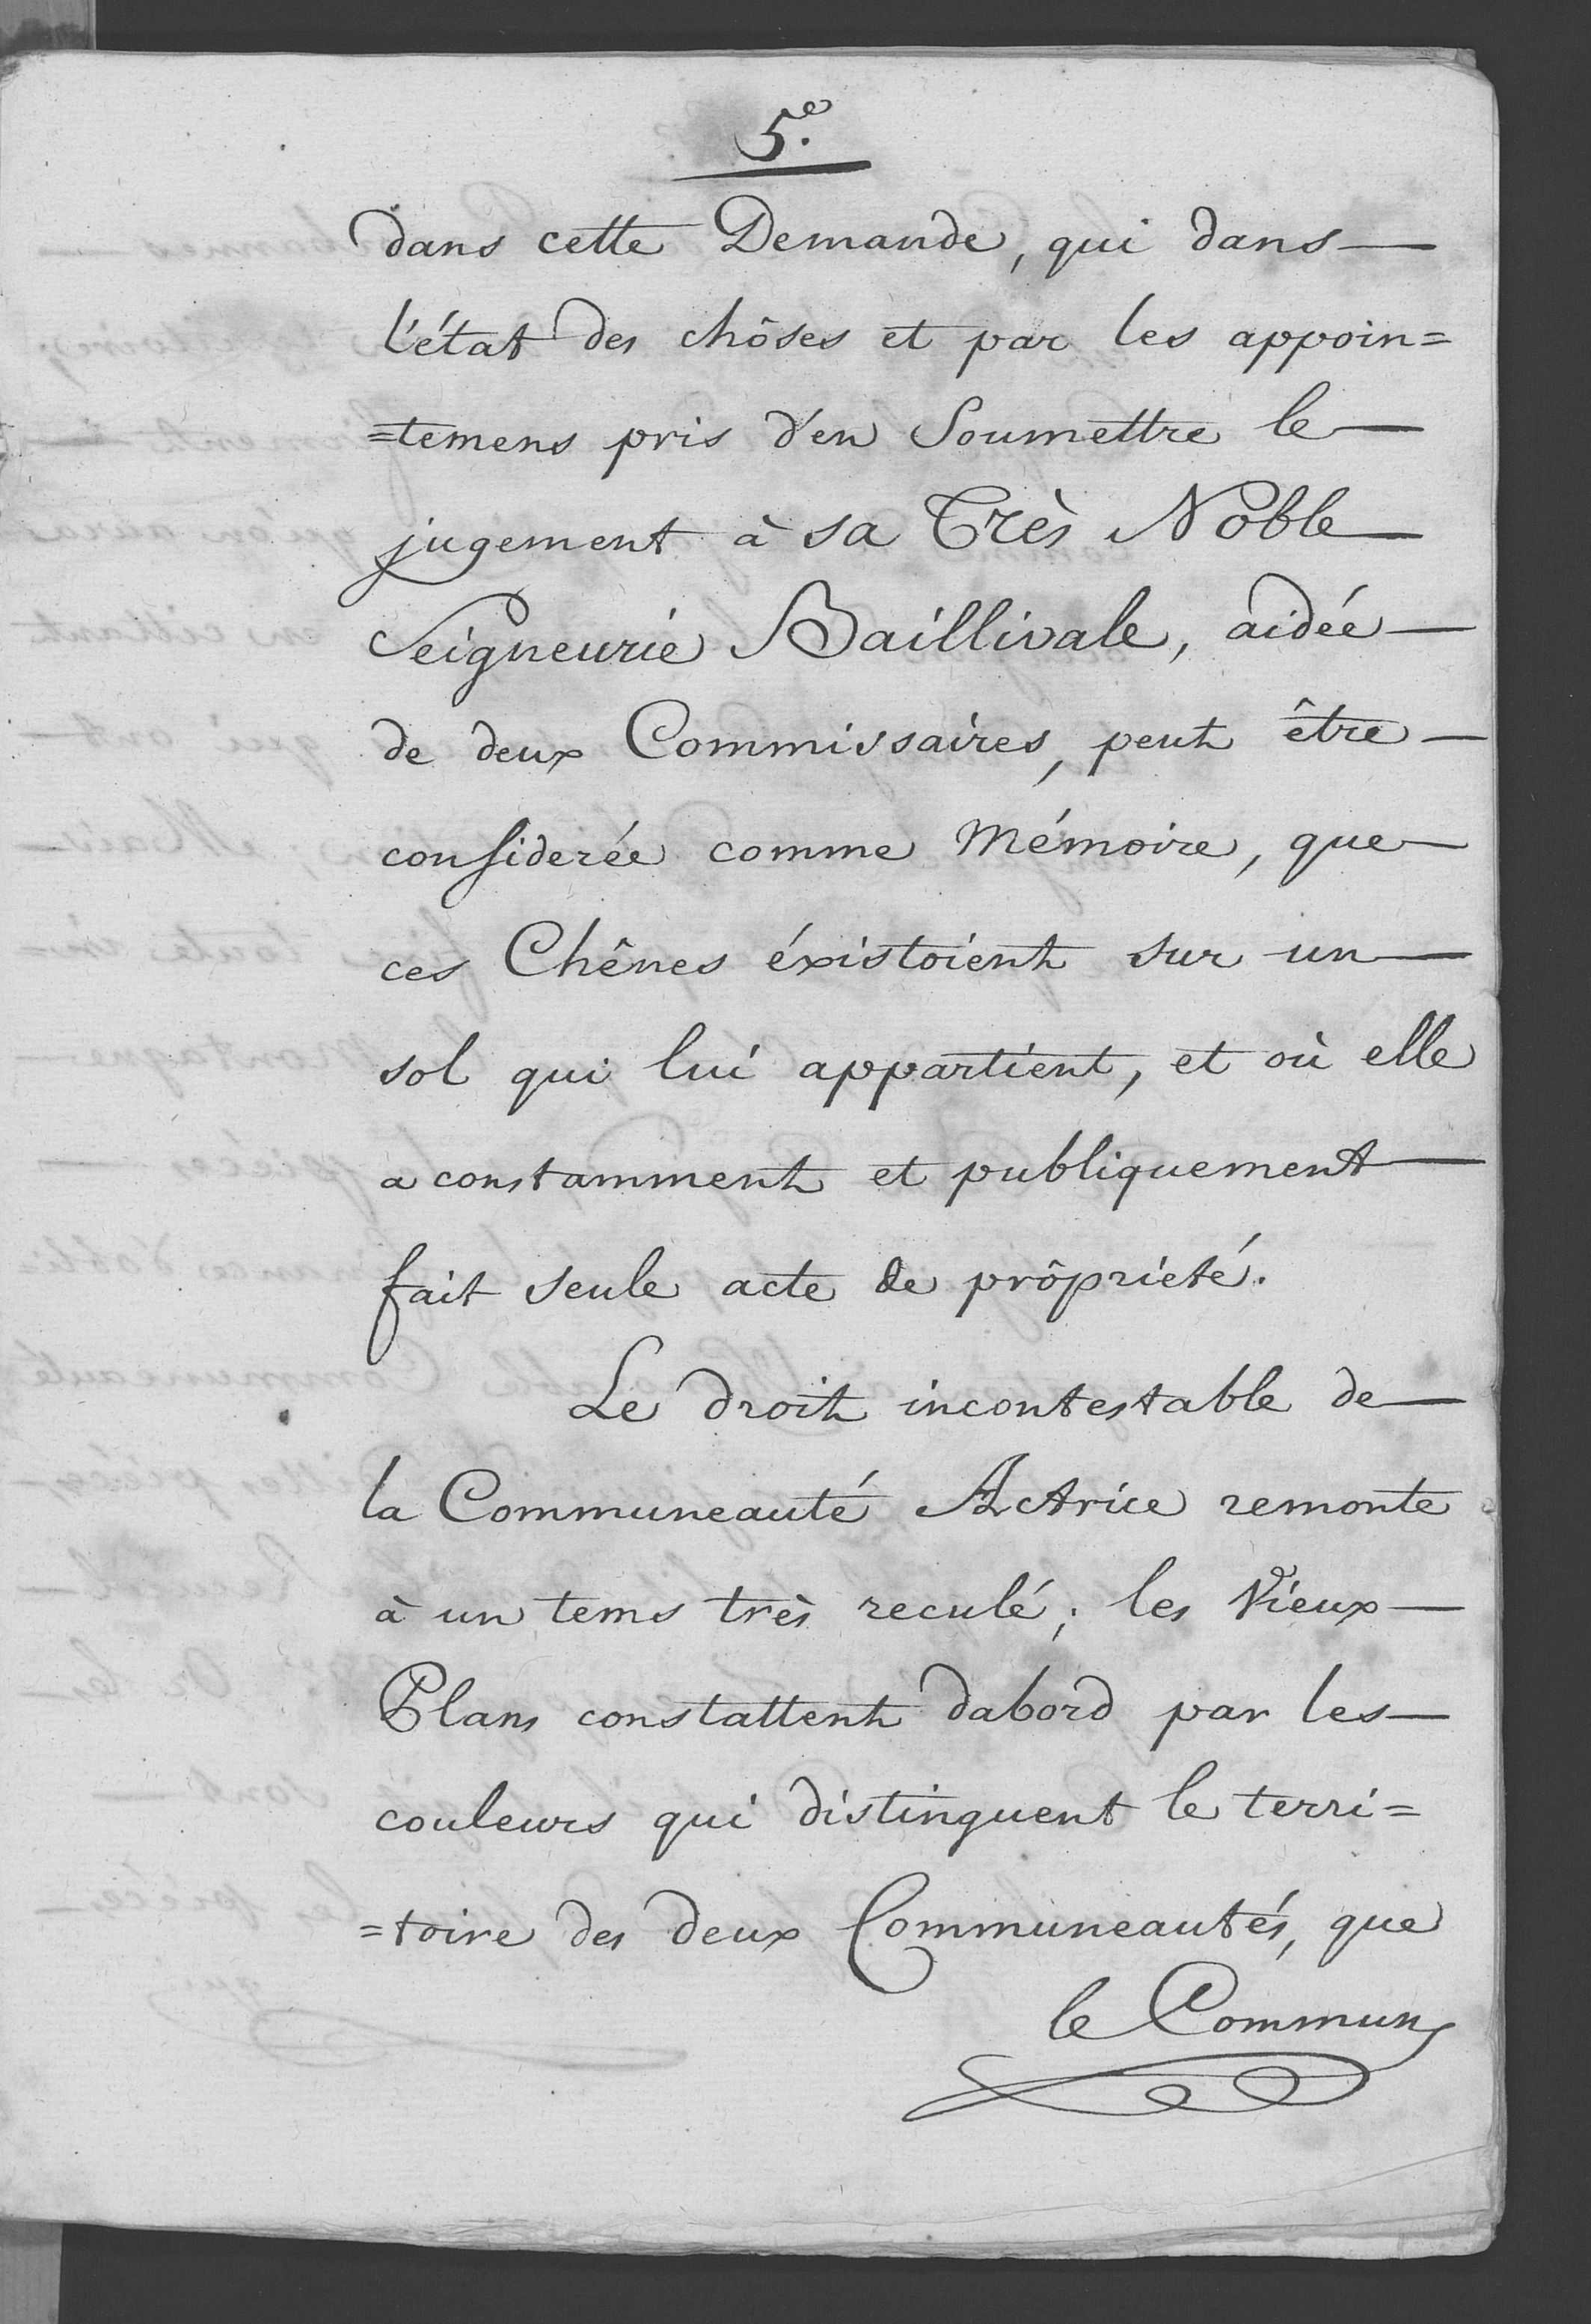 5.e
dans cette Demande, qui dans —
l'état des chôses et par les appoin=
=temens pris d'en Soumettre le —
jugement à sa Très Noble —
Seigneurie Baillivale, aidée —
de deux Commissaires, peut être —
considerée comme Mémoire, que —
ces Chênes éxistoient sur un —
sol qui lui appartient, et où elle
a constamment et publiquement —
fait seule acte de prôprieté.
Le droit incontestable de —
la Communeauté Actrice remonte
à un tems très reculé; les Vieux —
Plans constattent dabord par les —
couleurs qui distinguent le terri=
=toire des deux Communeautés, que
le Commun